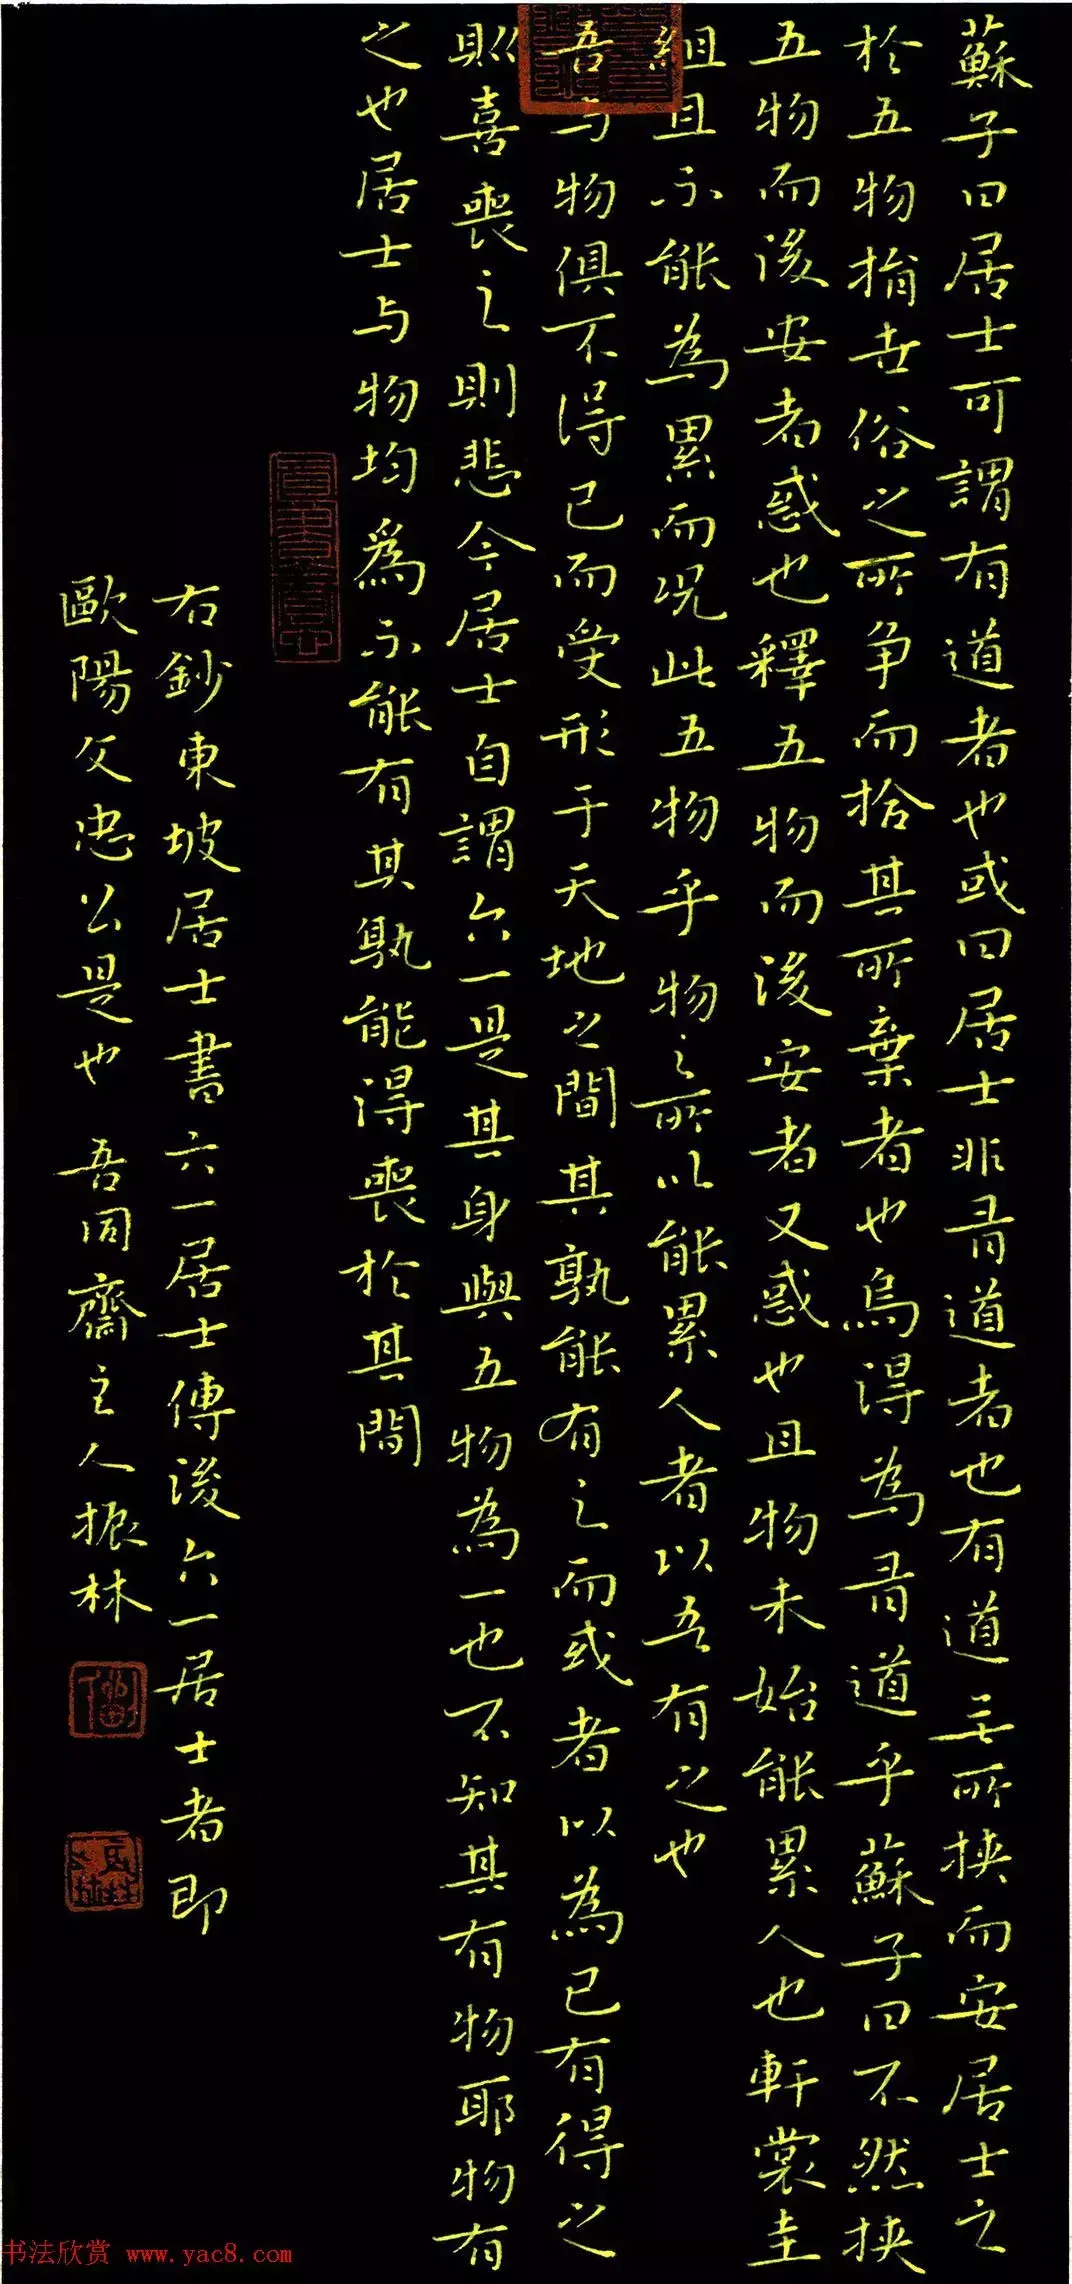 蘇子曰居士可謂有道者也或曰居士非有道者也有道無所挾而安居士之
於五物捐世俗之所争而拾其所棄者也烏得為有道乎蘇子曰不然挾
五物而後安者惑也釋五物而後安者又惑也且物未始能累人也軒裳圭
組且不能為累而况此五物乎物之所以能累人者以吾有之也
吾与物俱不得已而受形于天地之間其孰能有之而或者以為己有得之
則喜喪之則悲今居士自謂六一是其身與五物為一也不知其有物耶物有
之也居士与物均爲不能有其孰能得喪於其間
右鈔東坡居士書六一居士傳後六一居士者即
歐陽文忠公是也 吾同齋主人振林
书法欣赏 www.yac8.com